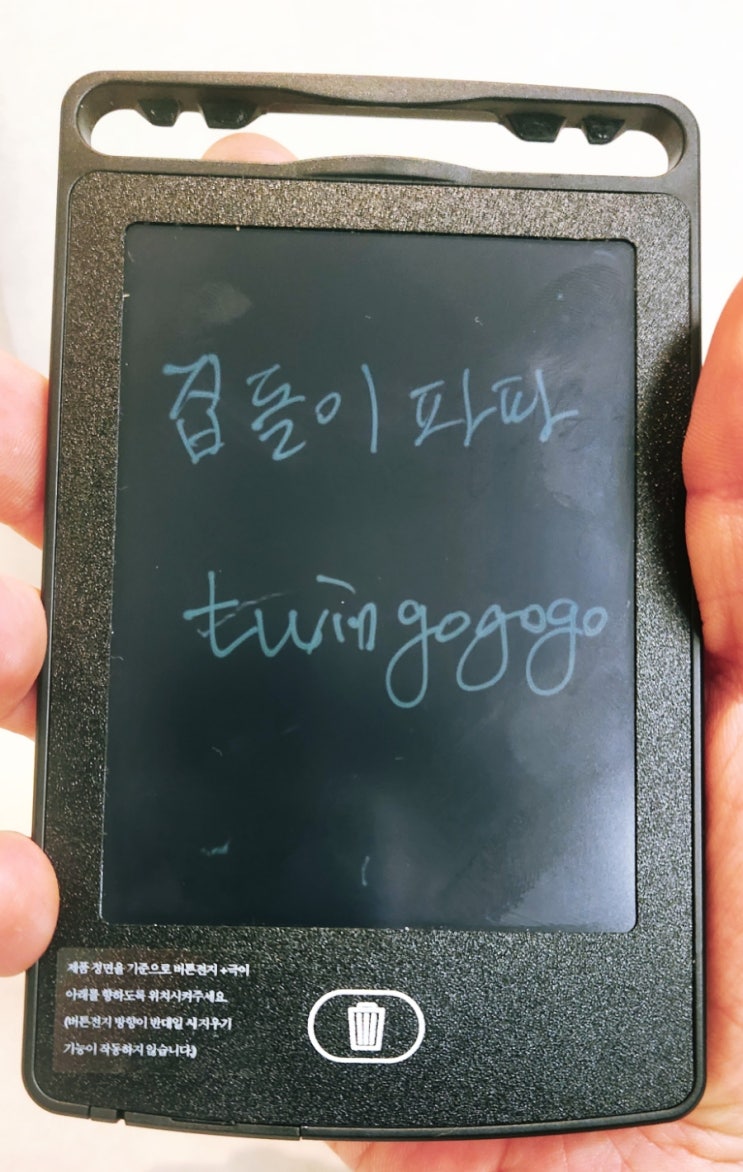 집돌이 파파
twingogogo
제품 정면을 기준으로 버튼전지 +극이
아래를 향하도록 위치시켜주세요
(버튼전지 방향이 반대일 시 지우기
기능이 작동하지 않습니다.)